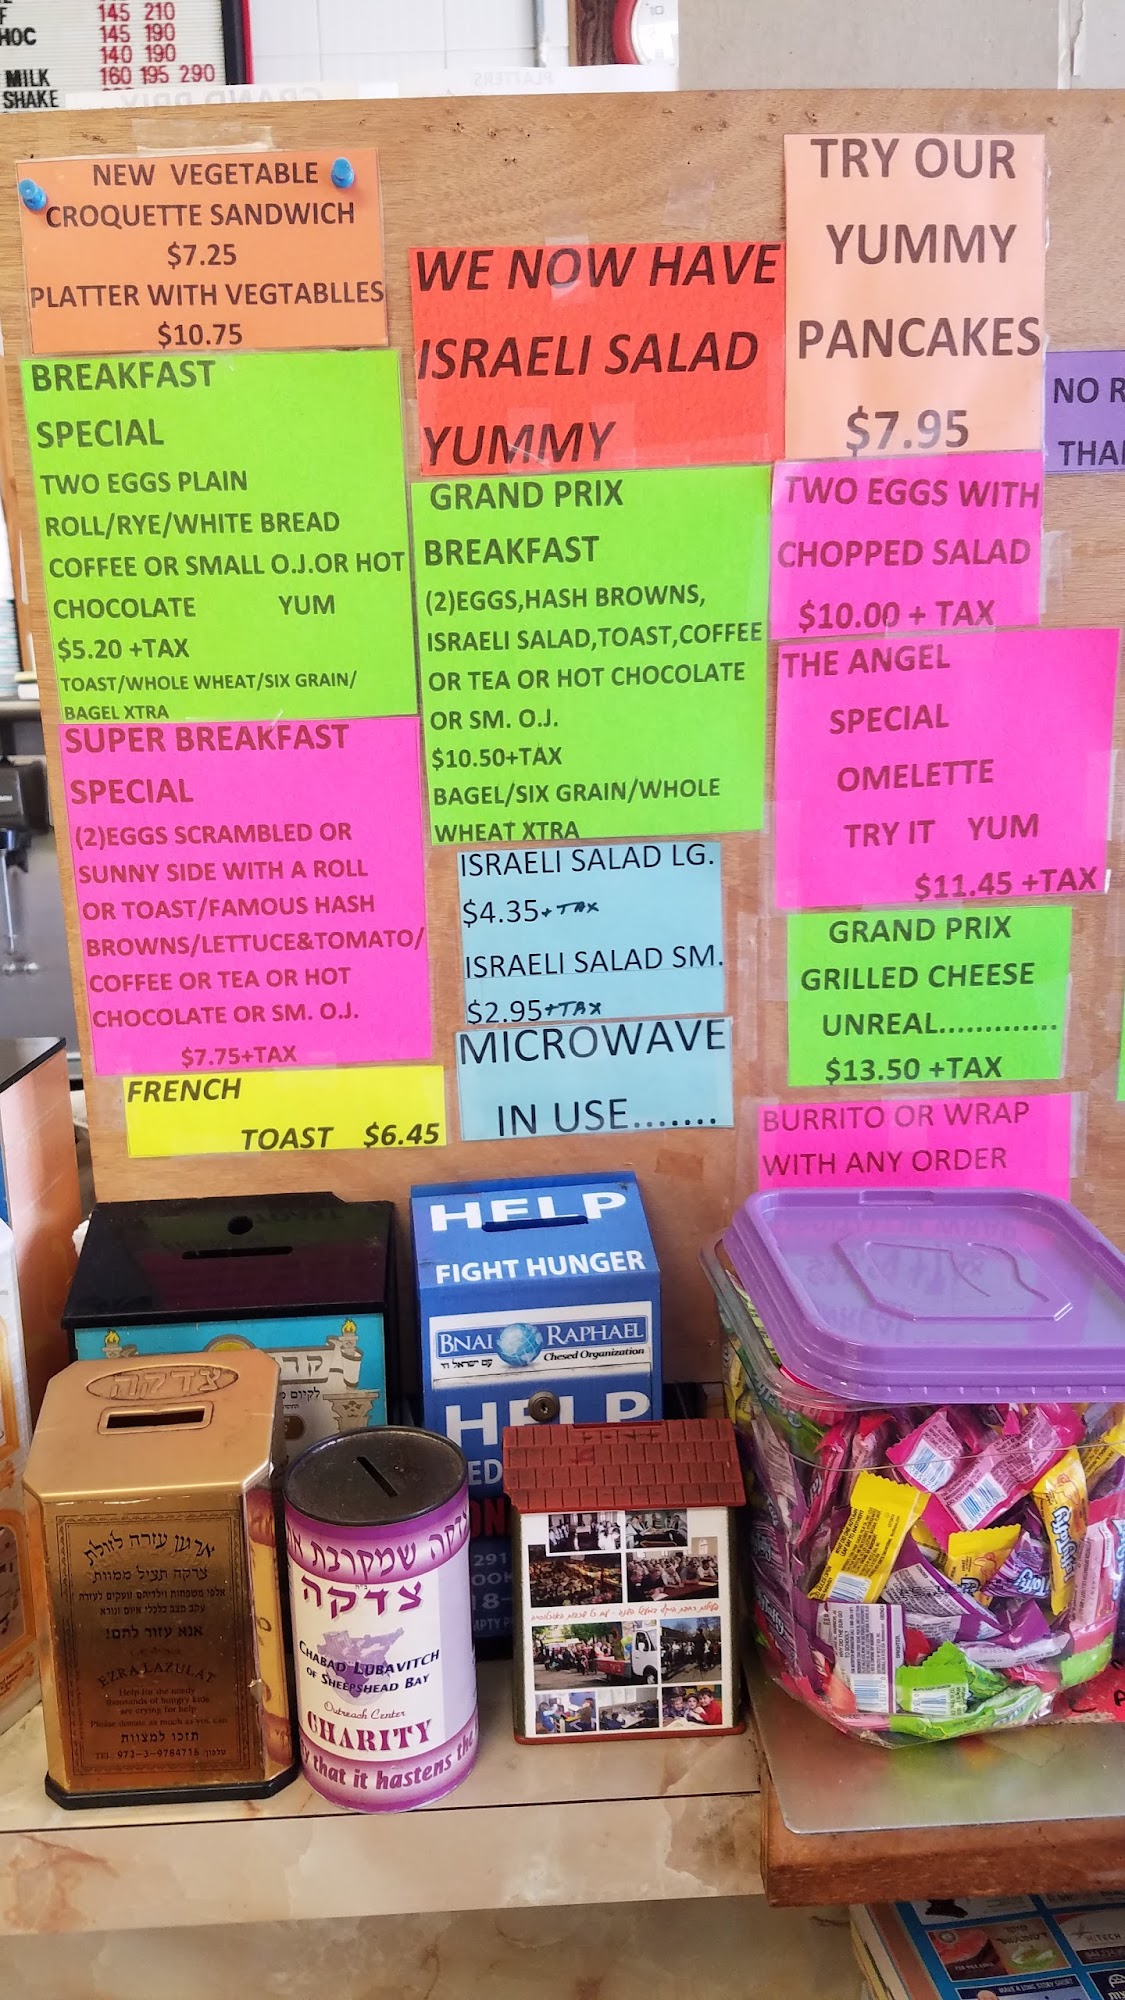 145 210
HOC 145 190
140 190
MILK 160 195 290
SHAKE
NEW VEGETABLE
CROQUETTE SANDWICH
$7.25
PLATTER WITH VEGTABLLES
$10.75
BREAKFAST
SPECIAL
TWO EGGS PLAIN
ROLL/RYE/WHITE BREAD
COFFEE OR SMALL O.J.OR HOT
CHOCOLATE YUM
$5.20 +TAX
TOAST/WHOLE WHEAT/SIX GRAIN/
BAGEL XTRA
SUPER BREAKFAST
SPECIAL
(2)EGGS SCRAMBLED OR
SUNNY SIDE WITH A ROLL
OR TOAST/FAMOUS HASH
BROWNS/LETTUCE&TOMATO/
COFFEE OR TEA OR HOT
CHOCOLATE OR SM. O.J.
$7.75+TAX
FRENCH
TOAST $6.45
WE NOW HAVE
ISRAELI SALAD
YUMMY
GRAND PRIX
BREAKFAST
(2)EGGS,HASH BROWNS,
ISRAELI SALAD,TOAST,COFFEE
OR TEA OR HOT CHOCOLATE
OR SM. O.J.
$10.50+TAX
BAGEL/SIX GRAIN/WHOLE
WHEAT XTRA
ISRAELI SALAD LG.
$4.35+TAX
ISRAELI SALAD SM.
$2.95+TAX
MICROWAVE
IN USE.......
TRY OUR
YUMMY
PANCAKES
$7.95
NO
TWO EGGS WITH
CHOPPED SALAD
$10.00 + TAX
THE ANGEL
SPECIAL
OMELETTE
TRY IT YUM
$11.45 +TAX
GRAND PRIX
GRILLED CHEESE
UNREAL.............
$13.50 +TAX
BURRITO OR WRAP
WITH ANY ORDER
HELP
FIGHT HUNGER
BNAI RAPHAEL
Chesed Organization
עם ישראל חי
HELP
צדקה
ארגון עזרה לזולת
צדקה תציל ממוות
אלפי משפחות וילדיהם זועקים לעזרה
עקב מצב כלכלי איום ונורא
אנא עזור להם!
EZRA LAZULAT
Help for the needy
thousands of hungry kids
are crying for help
Please donate as much as you can
תזכו למצוות
TEL. 972-3-9784716 טלפון
צדקה שמקרבת את
צדקה
CHABAD LUBAVITCH
OF SHEEPSHEAD BAY
Outreach Center
CHARITY
that it hastens the